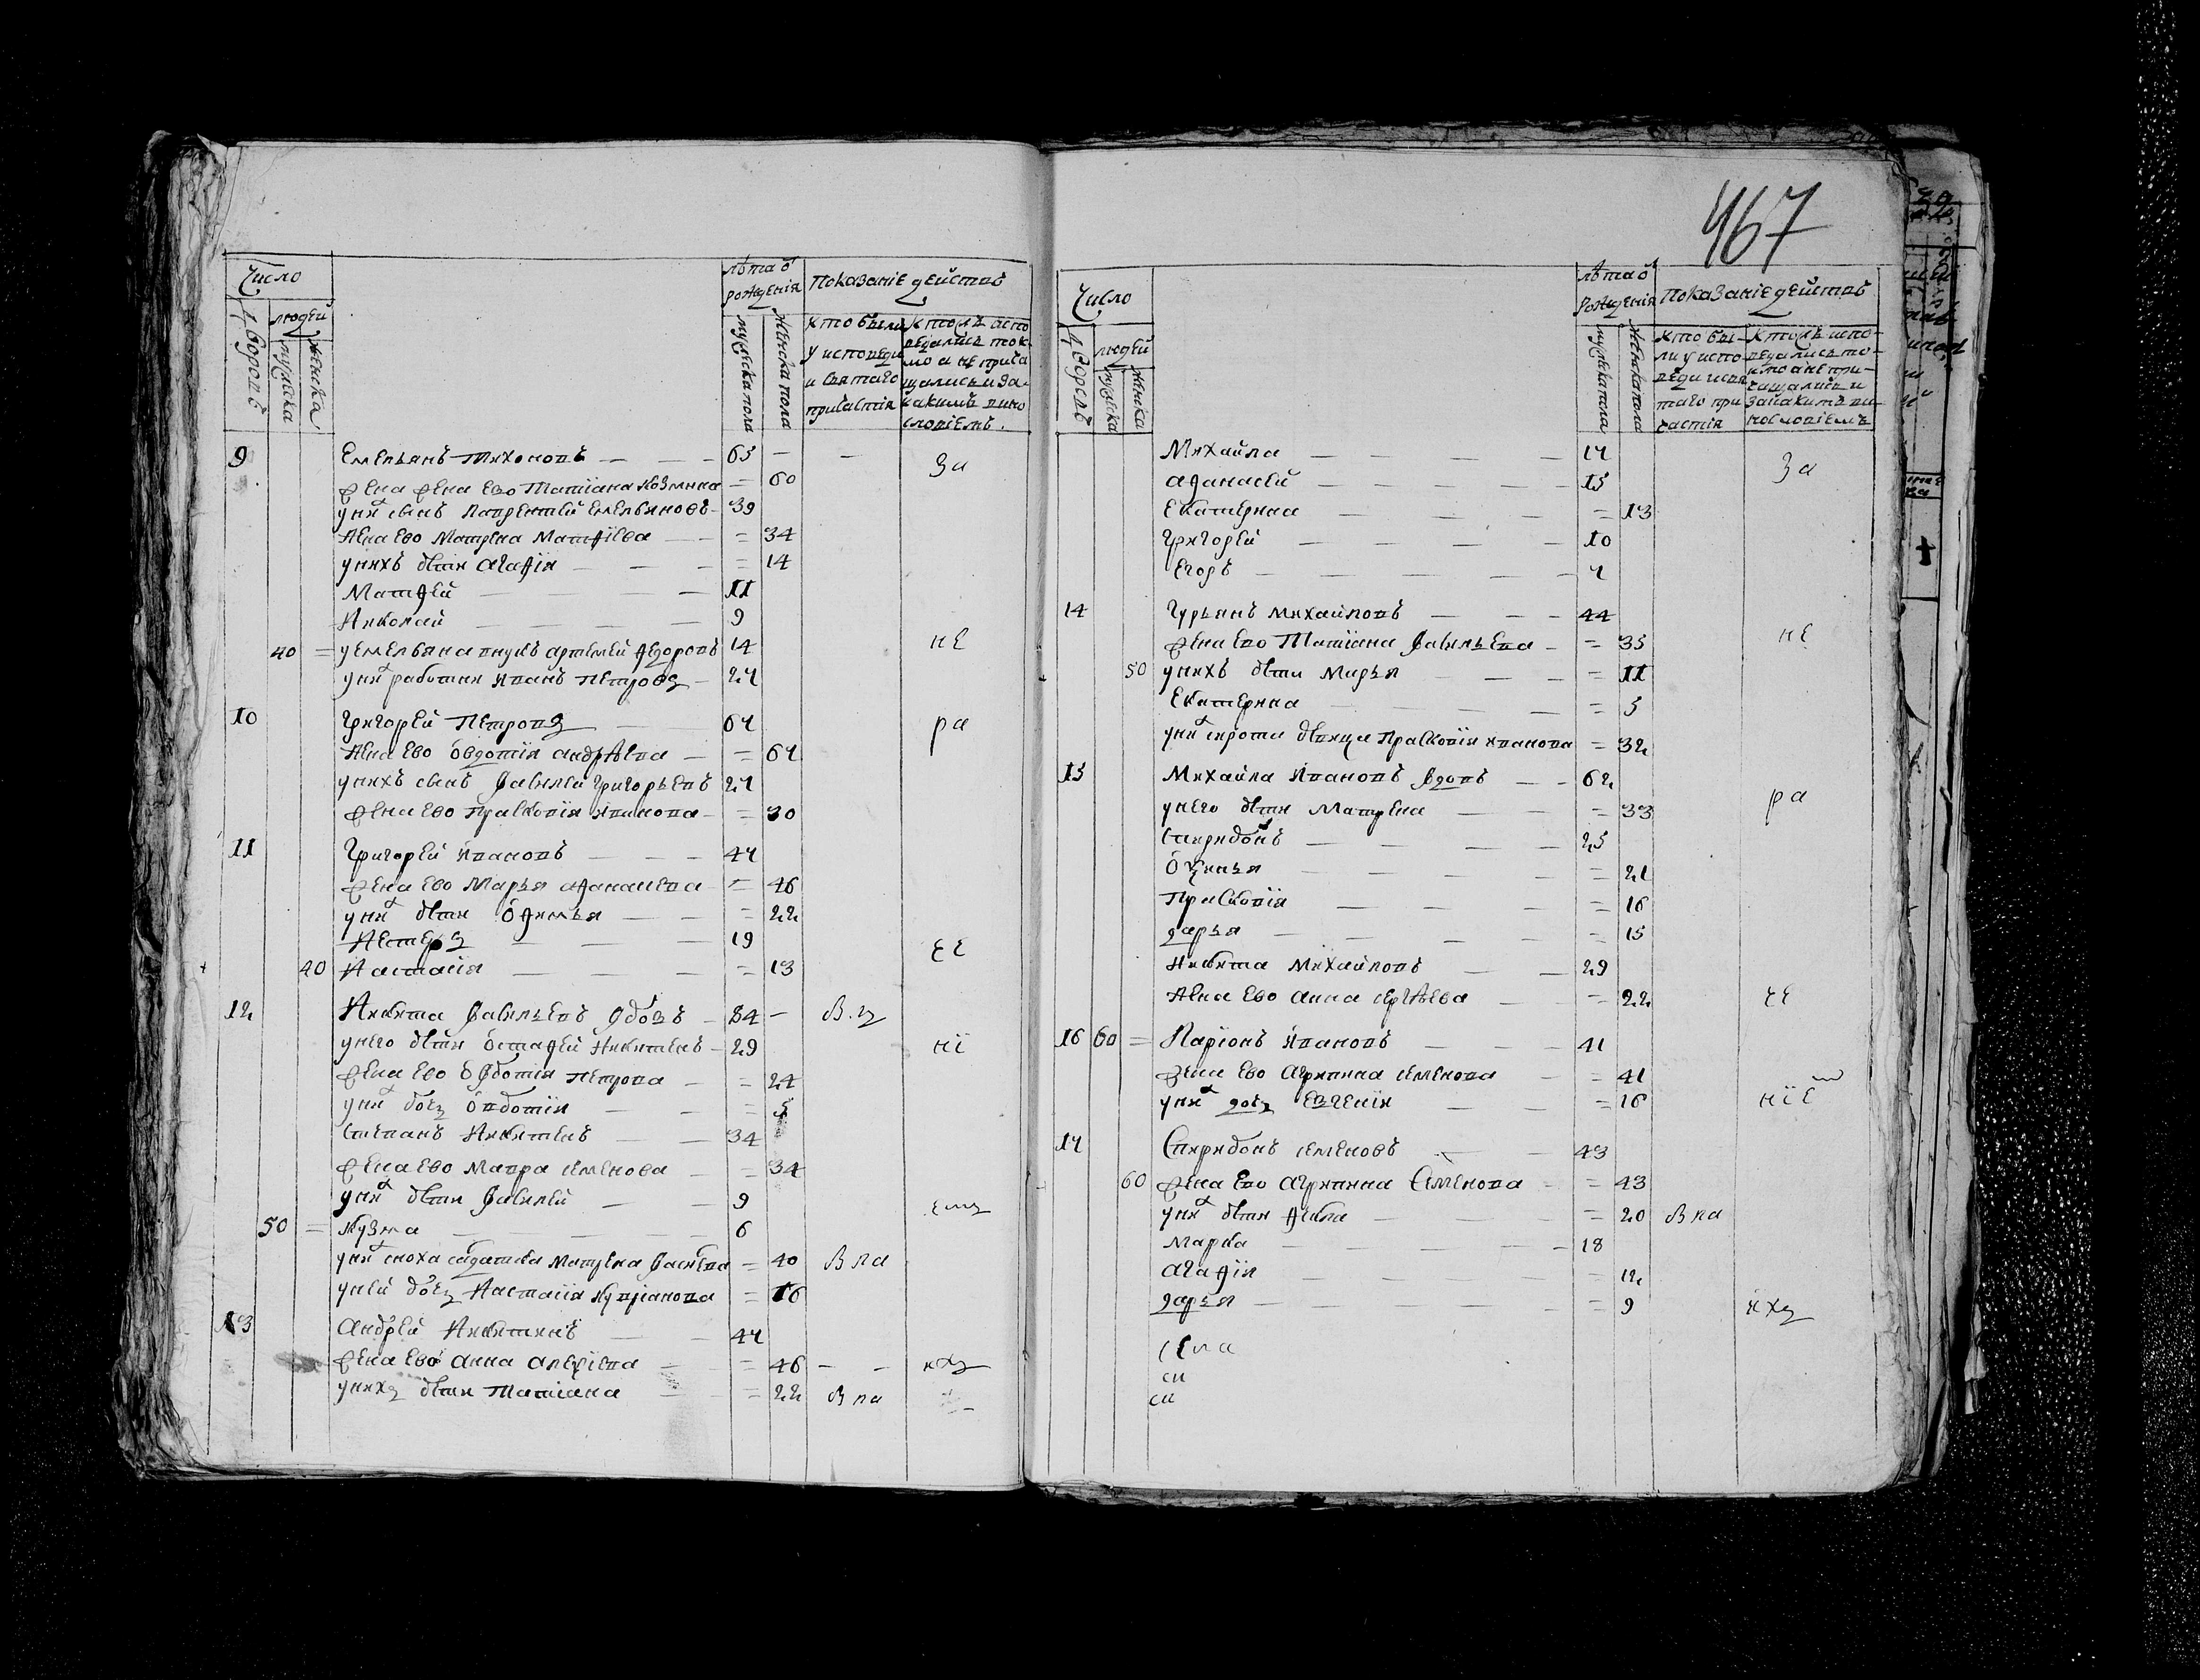 467
Число
лѣта ѿ рожденія
Показаніе действъ
дворовъ
людей
мужеска
женска
мужеска пола
женска пола
кто были
у исповеди
и святаго
причастія
кто лѣ испо
ведались ток
мо а не прича
щались и за
какимъ вино
словіемъ.
9 Емельянъ Тихоновъ — 65 — —
жена жена ево Татіана Козмина = 60
у них сынъ Лаврентей Емельяновъ 39
жена ево Матрена Матѳіева = 34
у нихъ дѣти Агаѳія = 14
Матѳей 11
Николай 9
40 = у Емельяна внукъ Артемей Ѳедоровъ 14
у них работник Иванъ Петровъ 27
10 Григорей Петровъ 67
жена ево Овдотія Андрѣева = 67
у нихъ сынъ Василей Григорьевъ 27
жена ево Прасковія Иванова = 30
11 Григорей Ивановъ 47
жена ево Марья Аѳанасева = 46
у них дѣти Оѳимья = 22
Нестеръ 19
40 Настасія = 13
12 Никита Васильевъ вдовъ 84 —
у него дѣти Остаѳей Никитинъ 29
жена ево Овдотія Петрова = 24
у них дочь Овдотія = 5
Степанъ Никитинъ 34
жена ево Мавра Семенова = 34
у них дѣти Василей 9
50 = Кузма 6
у них сноха салдатска Матрена Василева = 40 в ла
у ней дочь Настасія Купріанова = 16
13 Андрей Никитинъ 47
жена ево Анна Алексіева = 46 — — ихъ
у нихъ дѣти Татіана = 22 в ла
за
не
ра
ни
Число
лѣта ѿ рожденія
Показаніе действъ
дворовъ
людей
мужеска
женска
мужеска пола
женска пола
кто бы-
ли у испо
веди и свя
таго при
частія
кто лѣ испо-
ведались то-
кмо а не при-
чащались и
за какимъ ви-
нословіемъ
Михайла 17
Аѳанасей 15
Екатерина = 13
Григорей 10
Егоръ 7
14 Гурьянъ Михайловъ 44
жена ево Татіана Васильева = 35
50 у нихъ дѣти Марья = 11
Екатерина = 5
у них сирота дѣвица Прасковія Иванова = 32
15 Михайла Ивановъ вдовъ 62
у него дѣти Матрена = 33
Спиридонъ 25
= 21
Прасковія = 16
Дарья = 15
Никита Михайловъ 29
жена ево Анна Сергѣева = 22
16 60 = Ларіонъ Ивановъ 41
жена ево Агрипина Семенова = 41
у них дочь Евгенія = 16
17 Спиридонъ Семеновъ 43
60 жена ево Агрипина Семенова = 43
у них дѣти Ѳекла = 20 в ла
Марка 18
Агаѳія = 12
Дарья = 9 ихъ
за
не
ра
ніе
села
си
си